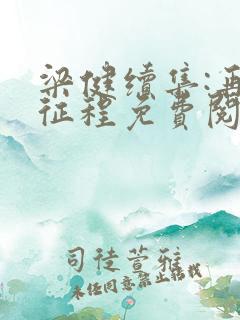 梁健續集:再
征程免費閱
司徒萱雅
未经同意禁止转载